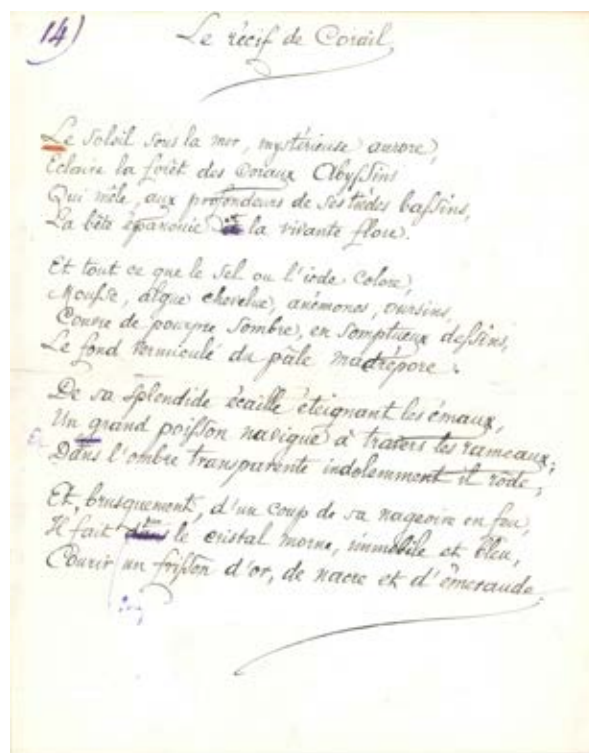 14)
Le récif de Corail
Le Soleil sous la mer, mystérieuse aurore,
Eclaire la forêt des Coraux Abyssins
Qui mêle, aux profondeurs de ses tièdes bassins,
La bête épanouie et la vivante flore.
Et tout ce que le Sel ou l'iode colore,
Mousse, algue chevelue, anémones, oursins,
Couvre de pourpre sombre, en somptueux dessins,
Le fond vermiculé du pâle madrépore.
De sa splendide écaille éteignant les émaux,
Un grand poisson navigue à travers les rameaux;
Dans l'ombre transparente indolemment il rôde;
Et, brusquement, d'un coup de sa nageoire en feu,
Il fait dans le cristal morne, immobile et bleu,
Courir un frisson d'or, de nacre et d'émeraude.